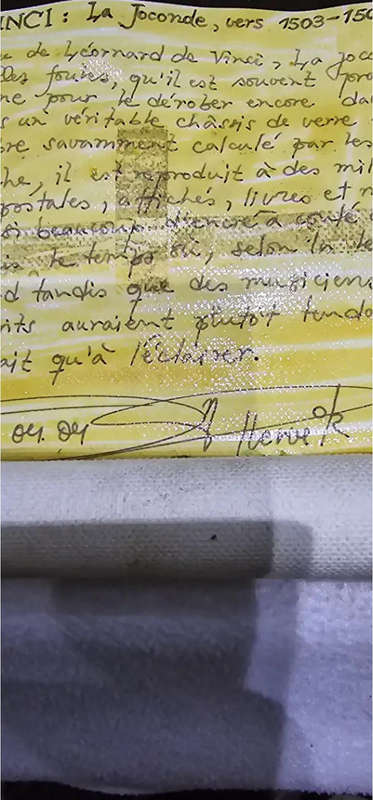 INCI : La Joconde, vers 1503-150
de Léonard de Vinci, La Joco
foules, qu'il est souvent pro
ne pour le dérober encore da
s un véritable châssis de verre
re savamment calculé par les
he, il est reproduit à des mil
postales, affiches, livres et
beaucoup d'encre a coulé
le temps où, selon la
d tandis que des musiciens
rits auraient plutôt tenda
ait qu'à l'éclairer.
04. 04 Hervé